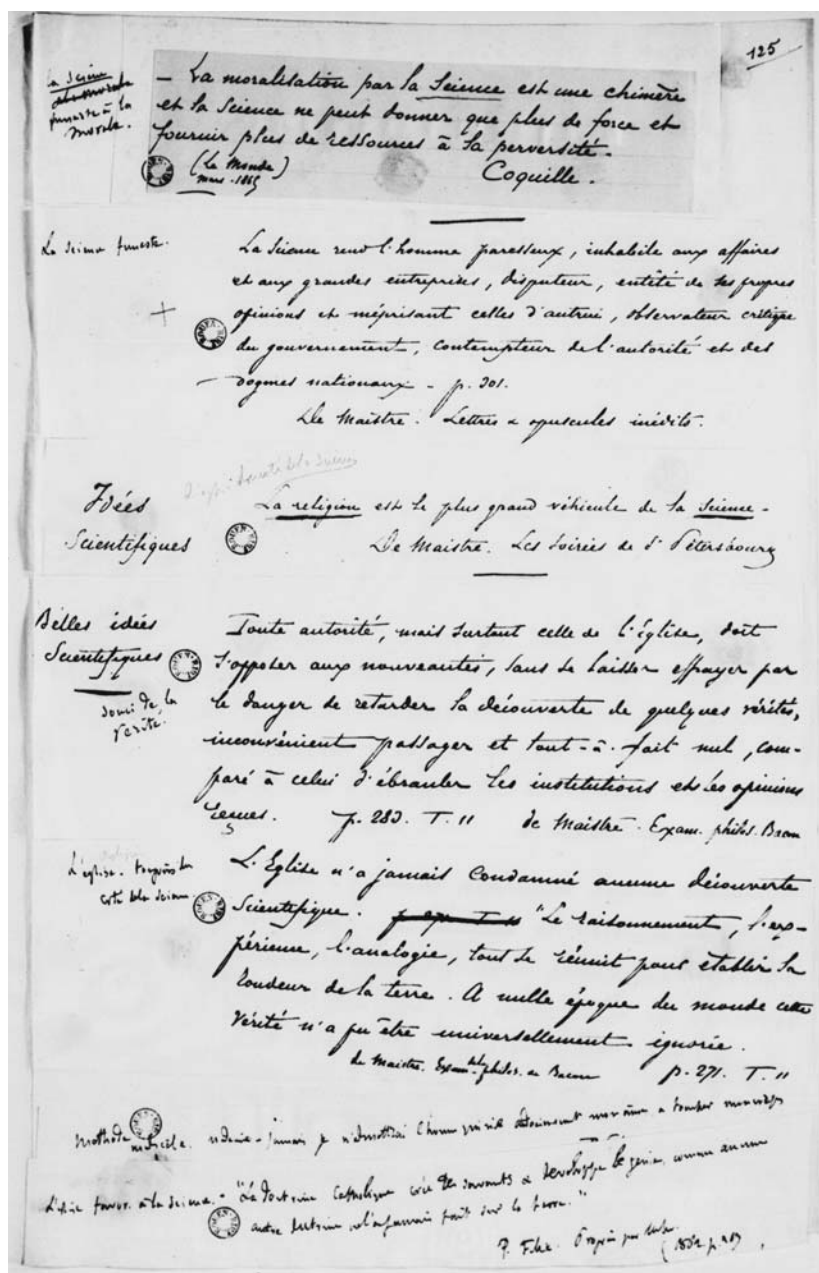 125
la science
funeste à la
morale.
– La moralisation par la Science est une chimère
et la Science ne peut donner que plus de force et
fournir plus de ressources à la perversité.
(Le Monde)
mars - 1865
Coquille.
La science funeste.
La Science rend l'homme paresseux, inhabile aux affaires
et aux grandes entreprises, disputeur, entêté de ses propres
opinions et méprisant celles d'autrui, observateur critique
du gouvernement, contempteur de l'autorité et des
dogmes nationaux - p. 301.
De Maistre. Lettres & opuscules inédits.
Idées
Scientifiques
La religion est le plus grand véhicule de la Science -
De Maistre. Les Soirées de St Pétersbourg
Belles idées
Scientifiques
souci de la
vérité.
Toute autorité, mais surtout celle de l'église, doit
s'opposer aux nouveautés, sans se laisser effrayer par
le danger de retarder la découverte de quelques vérités,
inconvénient passager et tout-à-fait nul, com-
paré à celui d'ébranler les institutions et les opinions
reçues. p. 283. T. 11 de Maistre - Exam. philos. Bacon
L'église. toujours du
côté de la science.
L'Eglise n'a jamais Condamné aucune découverte
Scientifique. "Le raisonnement, l'ex-
périence, l'analogie, tout se réunit pour établir la
rondeur de la terre. A nulle époque du monde cette
vérité n'a pu être universellement ignorée.
de Maistre. Exam. philos. de Bacon p. 271. T. 11
Methode jamais je n'admettrai
- "La Doctrine Catholique crée des savants & développe le génie, comme aucune
autre doctrine ne l'a jamais fait sur la terre."
P. Felix. Progrès par